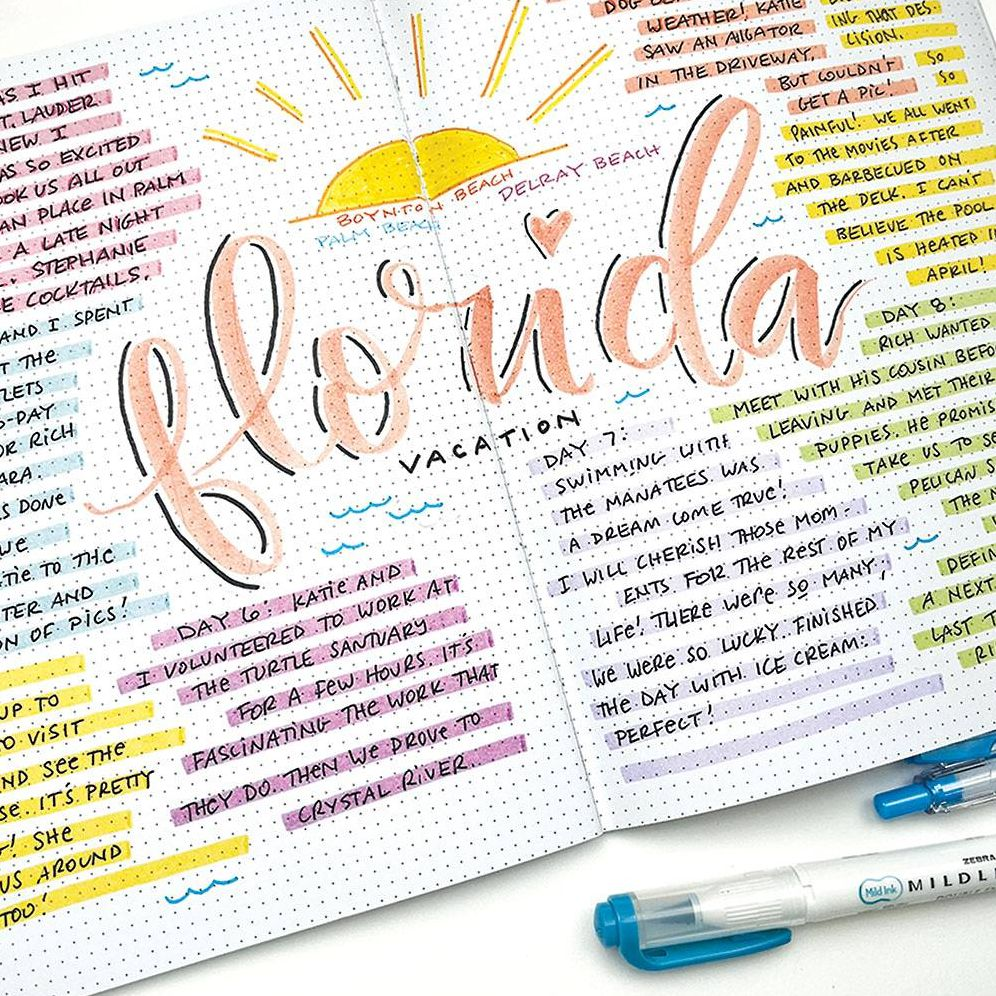 AS I HIT
T. LAUDER-
NEW I
AS SO EXCITED
OOK US ALL OUT
AN PLACE IN PALM
A LATE NIGHT
STEPHANIE
E COCKTAILS.
AND I SPENT
T THE
TLETS
D-PAY
OR RICH
ARA.
S DONE
WE
ATIE TO THE
TER AND
ON OF PICS!
UP TO
TO VISIT
ND SEE THE
SE. IT'S PRETTY
G! SHE
US AROUND
TOO!
BOYNTON BEACH
DELRAY BEACH
PALM BEACH
florida
VACATION
DAY 6: KATIE AND
I VOLUNTEERED TO WORK AT
THE TURTLE SANTUARY
FOR A FEW HOURS. IT'S
FASCINATING THE WORK THAT
THEY DO. THEN WE PROVE TO
CRYSTAL RIVER.
WEATHER! KATIE
SAW AN AlIGATOR
IN THE DRIVEWAY,
BUT COULDN'T
GET A PIC!
DAY 7:
SWIMMING WITH
THE MANATEES WAS
A DREAM COME TRUE!
I WILL CHERISH THOSE MOM-
ENTS FOR THE REST OF MY
LIFE! THERE WERE SO MANY,
WE WERE SO LUCKY. FINISHED
THE DAY WITH ICE CREAM:
PERFECT!
ING THAT DES
LISION.
SO
SO
PAINFUL! WE ALL WENT
TO THE MOVIES AFTER
AND BARBECUED ON
THE DECK. I CAN'T
BELIEVE THE POOL
IS HEATED I
APRIL!
DAY 8:
RICH WANTED
MEET WITH HIS COUSIN BEFO
LEAVING AND MET THEIR
PUPPIES. HE PROMIS
TAKE US TO SE
PELICAN S
THE N
DEFIN
A NEXT
LAST T
RI
ZEBRA
Mild Ink MILDLI